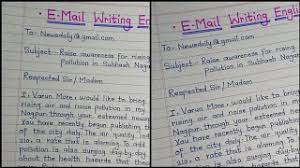 • E-Mail Writing Engli
To- Newsdaily@gmail.com
Subject- Raise awareness for rising
pollution in Subhash Nagar
Respected Sir/Madam
I, Varun More, would like to bring
rising air and noise pollution in
Nagpur through your esteemed
You have recently begun publishing
of the city daily. The air
addition to this,
pollution is also surging day-by-day
about the health hazards that
• E-Mail Writing Eng
To- Newsdaily@gmail.com
Subject- Raise awareness for rising
pollution in Subhash Nagar
Respected Sir/Madam
I, Varun More, would like to bring
rising air and noise pollution in
Nagpur through your esteemed
You have recently begun publishing
of the city daily. The air
addition to this,
pollution is also surging day
about the health hazards